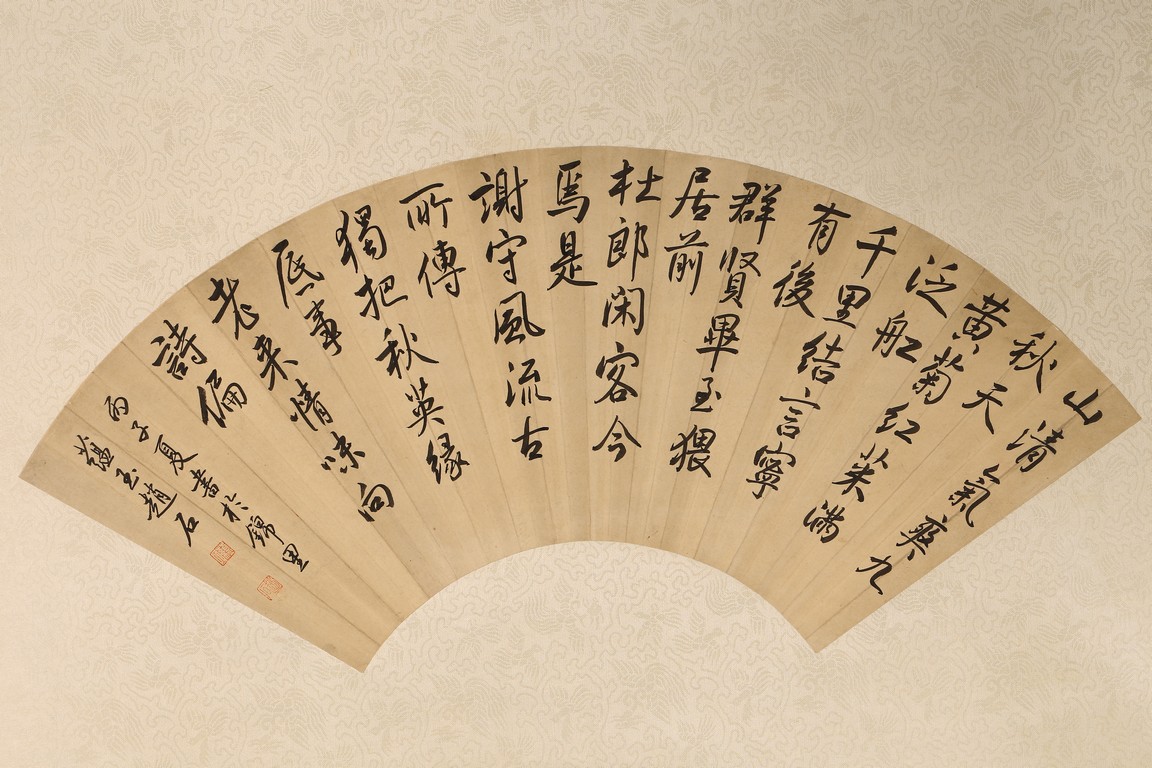 山清氣爽九
秋天
黄菊紅茱滿
泛船
千里結言寧
有後
群賢畢至猥
居前
杜郎閑客今
焉是
謝守風流古
所傳
獨把秋英緣
底事
老来情味向
詩偏
丙子夏書於錦里
蘊玉趙石